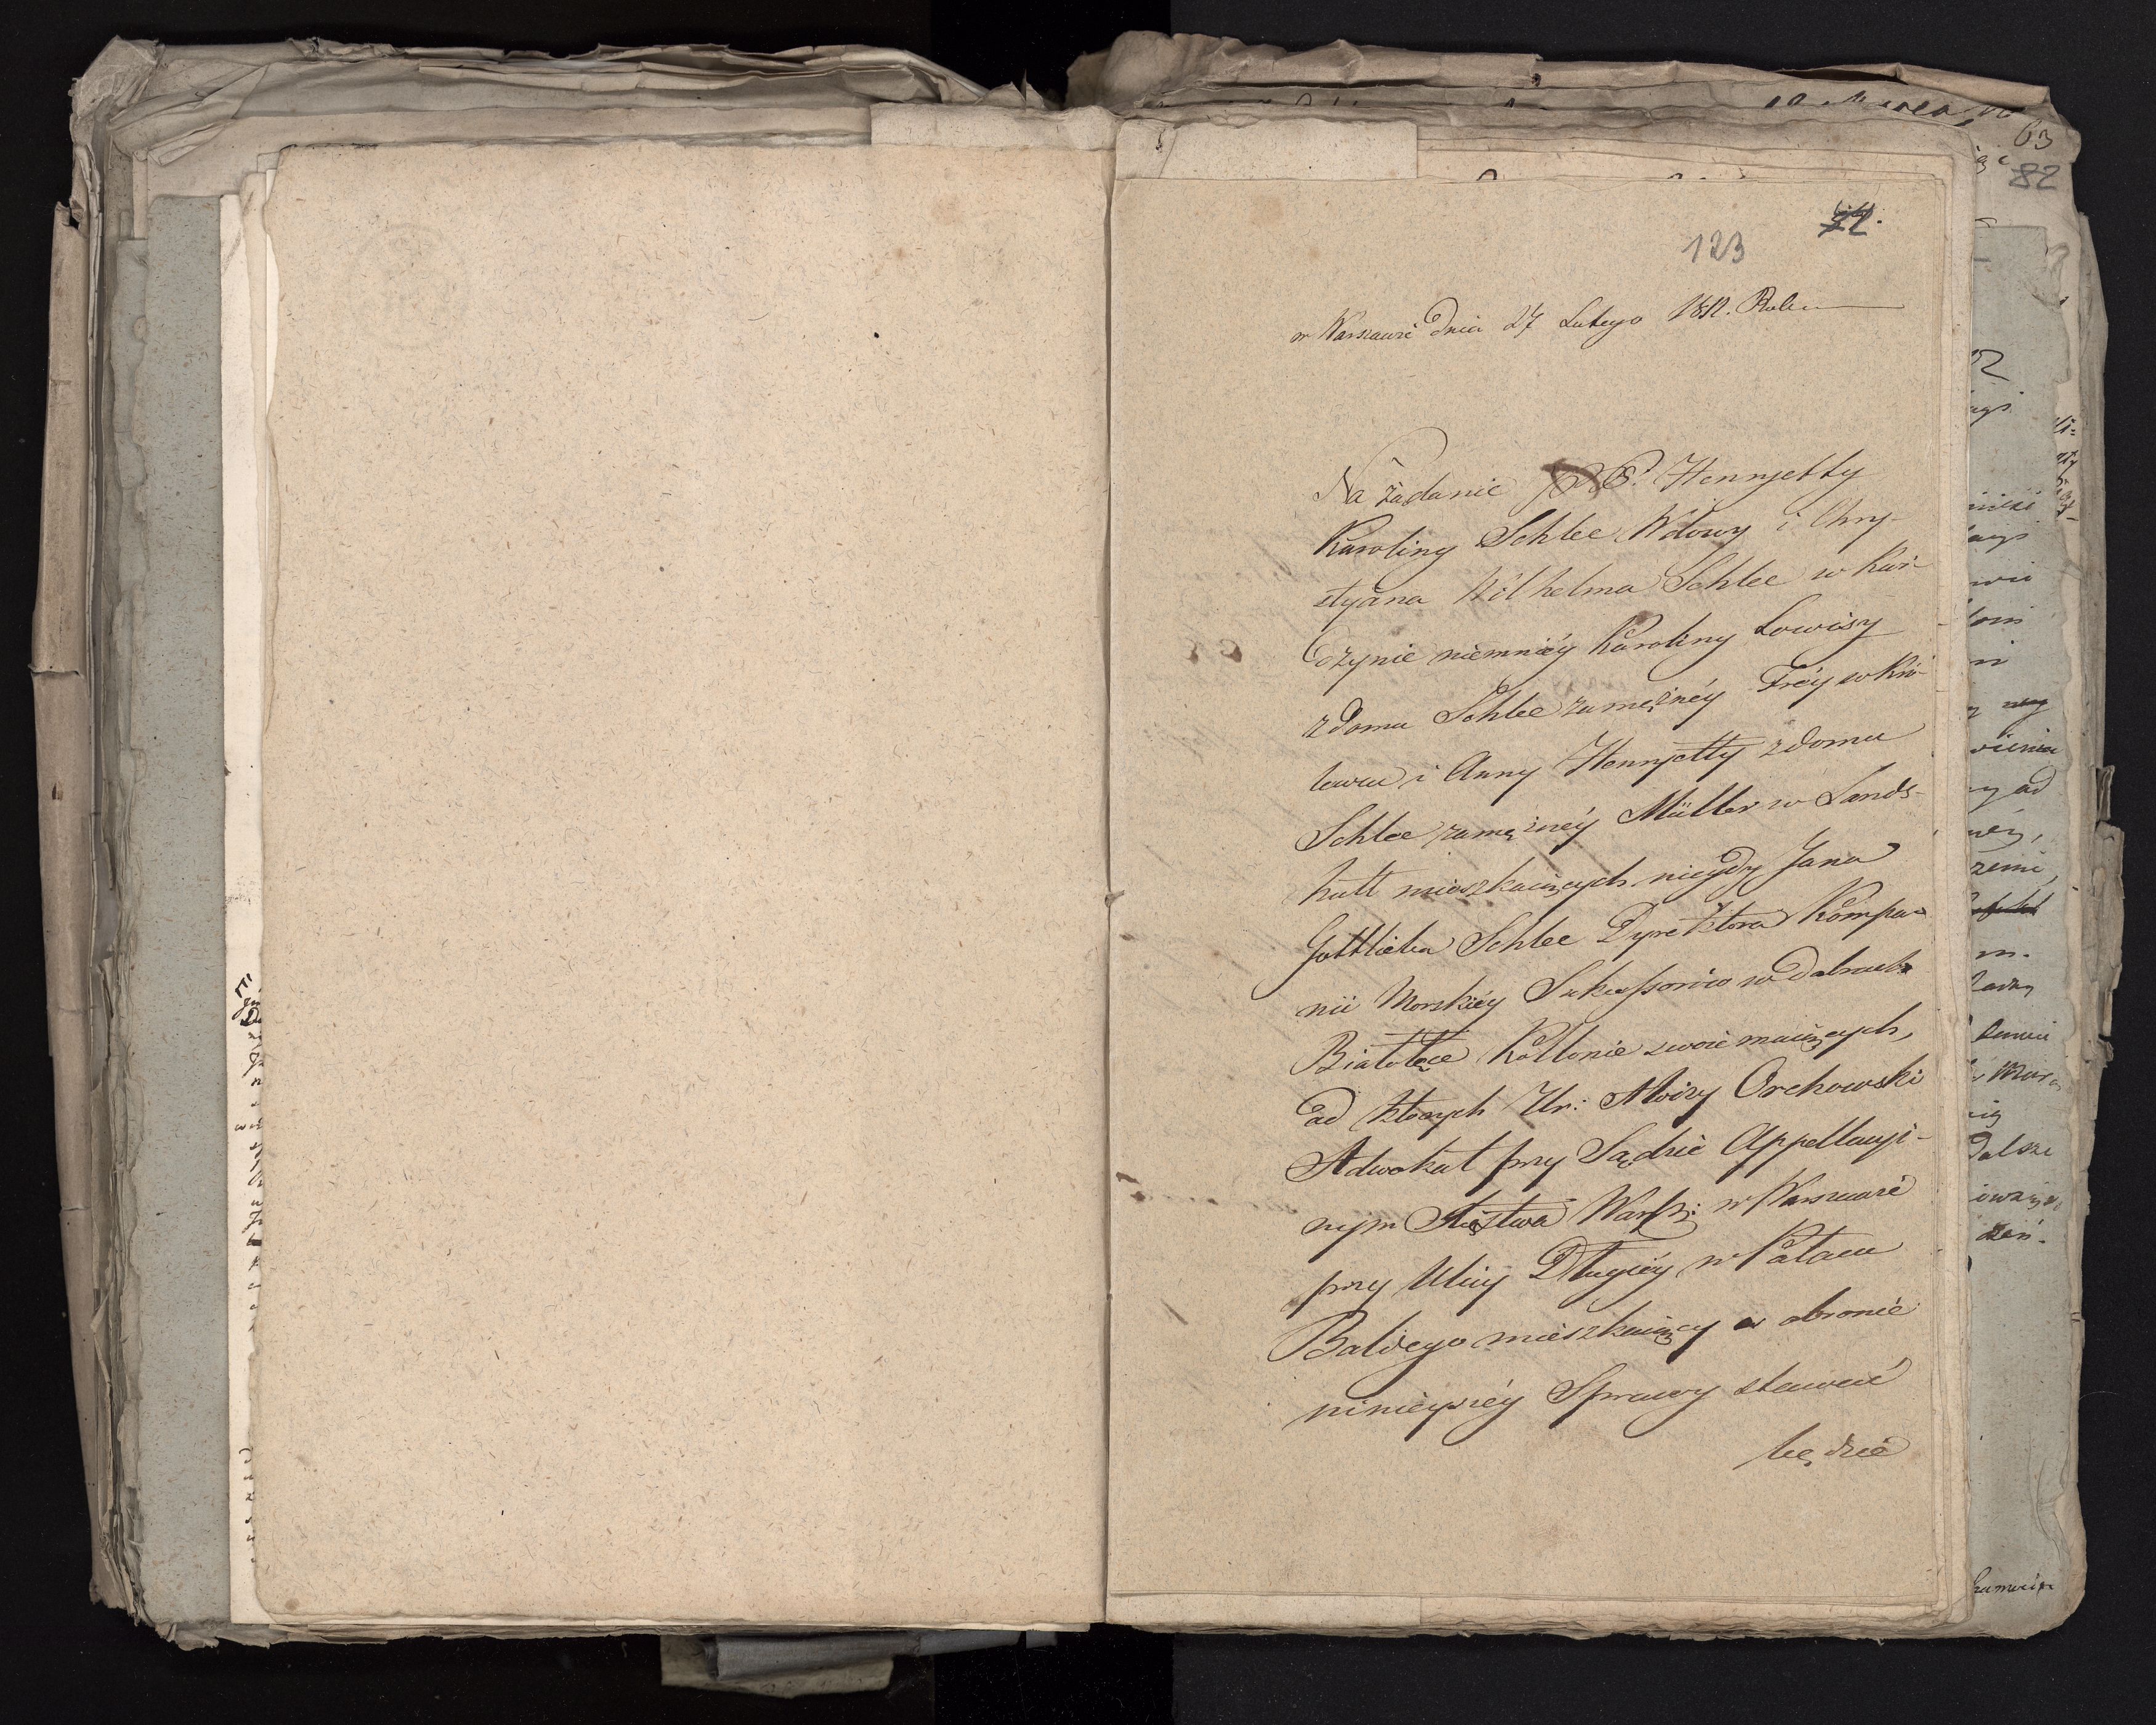 123
w Warszawie Dnia 27 Lutego 1812. Roku
Na żądanie P. Hennyetty
Karoliny Schlee Wdowy i Chry-
styiana Wilhelma Schlee w Kar-
gzynie niemniéy Karoliny Lowisy
z domu Schlee zamężnéy Fréy w Kró-
lewcu i Anny Hennyetty z domu
Schlee zamężnéy Müller w Lands-
hutt mieszkaiących niegdy Jana
Gottlieba Schlee Dyrektora Kompa-
nii Morskiéy Sukcessorów w Dobrach
Białołęce Kollonie swoie maiących,
od których Ur: Aloizy Orchowski
Adwokat przy Sądzie Appellacyi-
nym Xięstwa Warsz: w Warszawie
przy Ulicy Długiéy w Pałacu
Baldego mieszkaiący w obronie
ninieyszéy Sprawy stawać
będzie
63
82